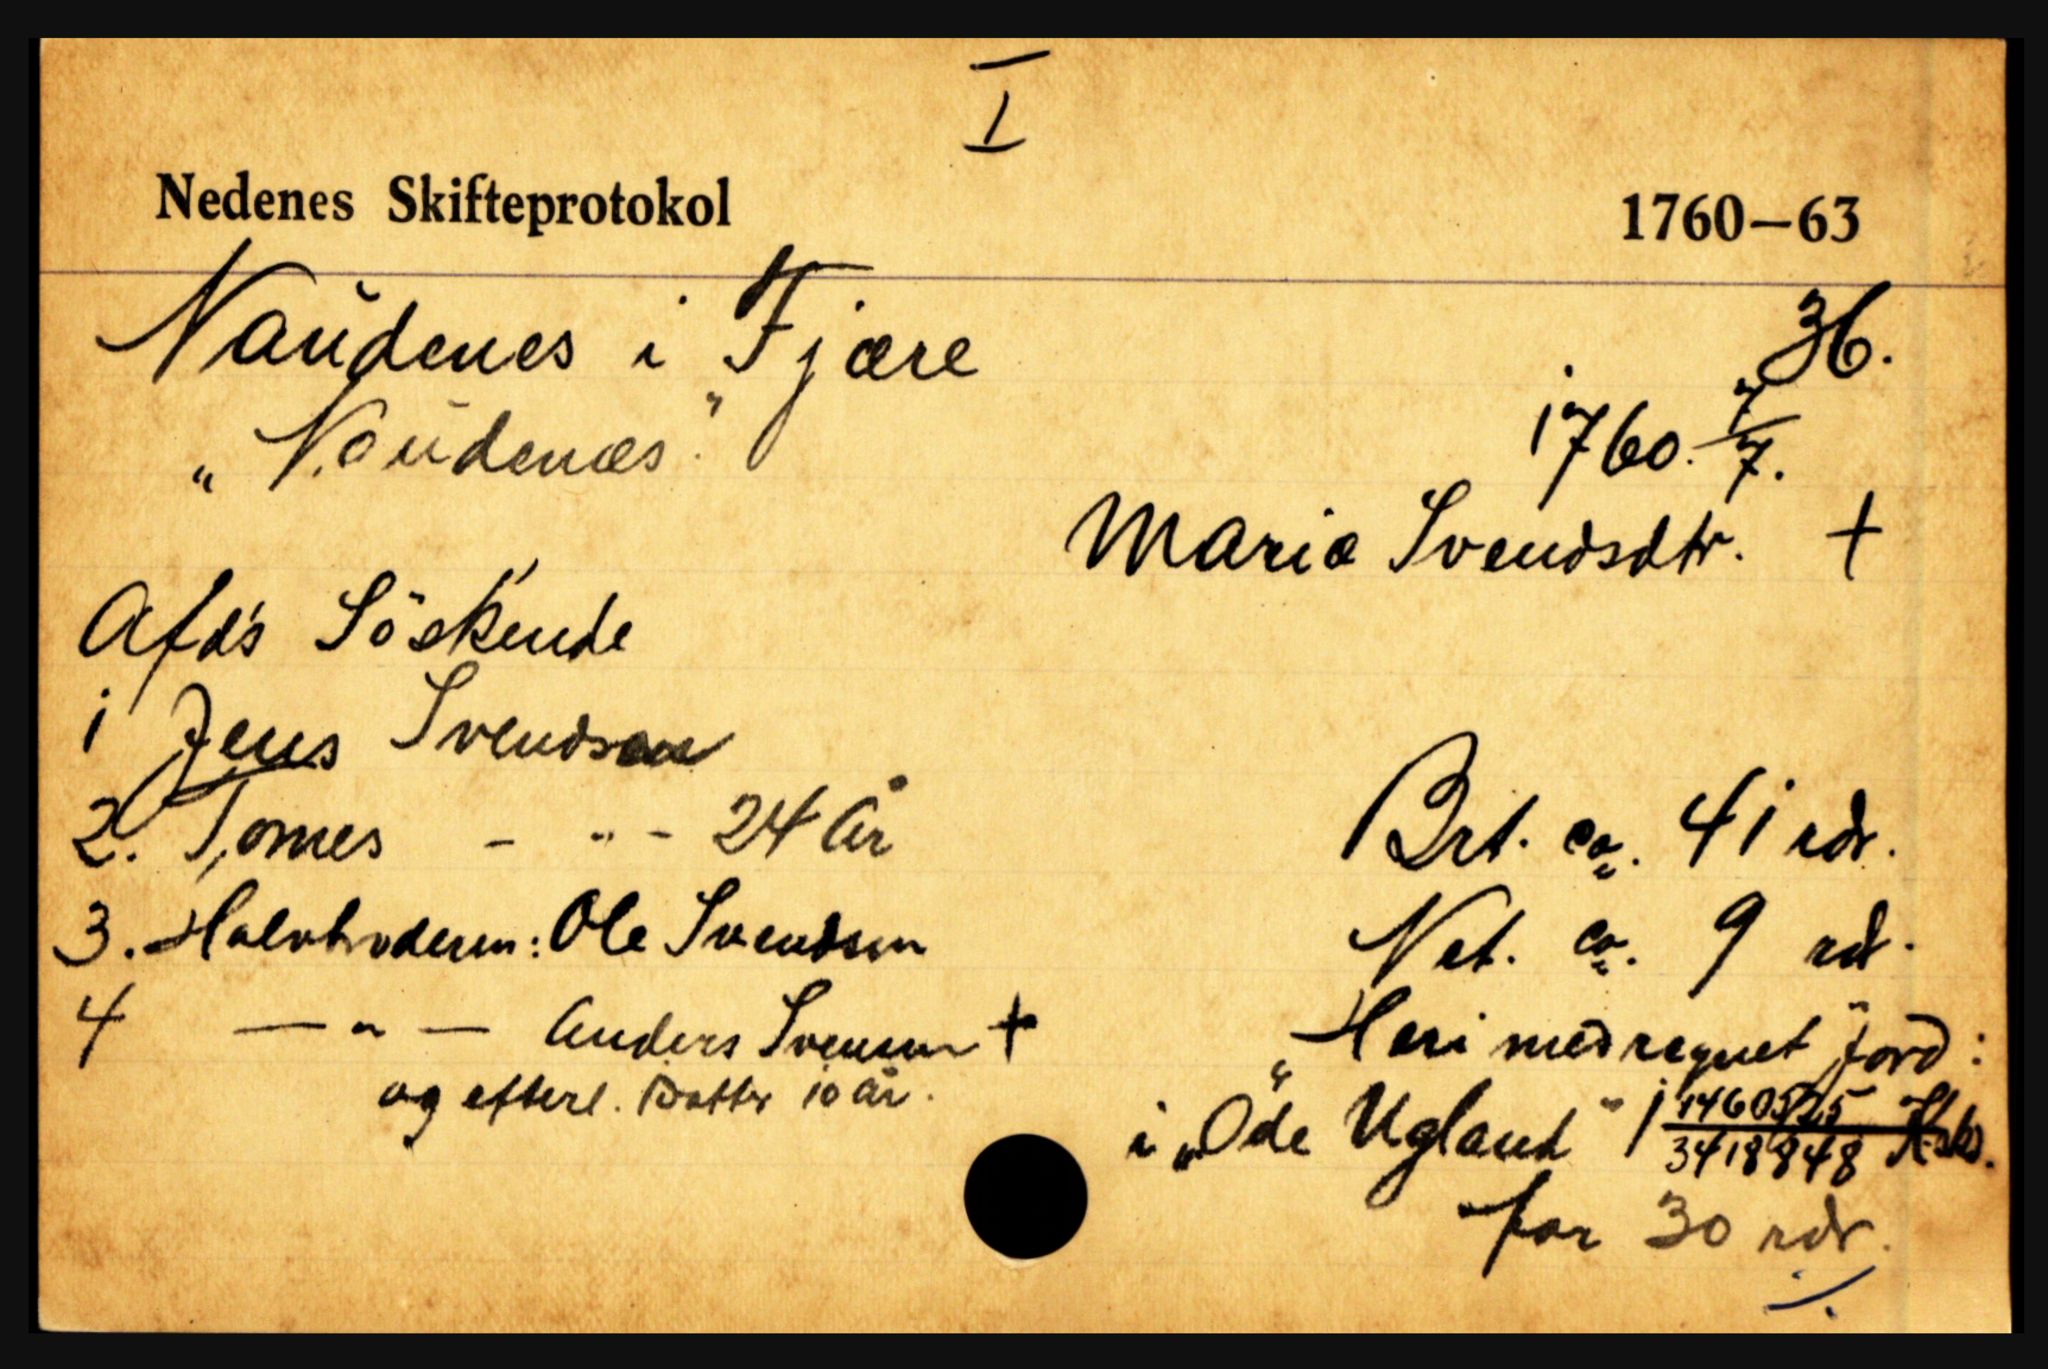 I
Nedenes Skifteprotokol 1760—63
Naŭdenes i Fjære 36.
„Naŭdenæs" 1760. 7/7.
Maria Svendsdtr. +
Afd's Söskende
1 Jens Svendsen
2. Tomes - " - 24 År
3. Halvbroderen: Ole Svendsen
4 — " — Anders Svensen +
og efterl. Datter 10 år.
Brt. ca. 41 rdr.
Net. ca. 9 rd.
„Heri medregnet Jord:
i „Öde Ugland" 1 1460525/3418848 Hsks.
for 30 rdr.